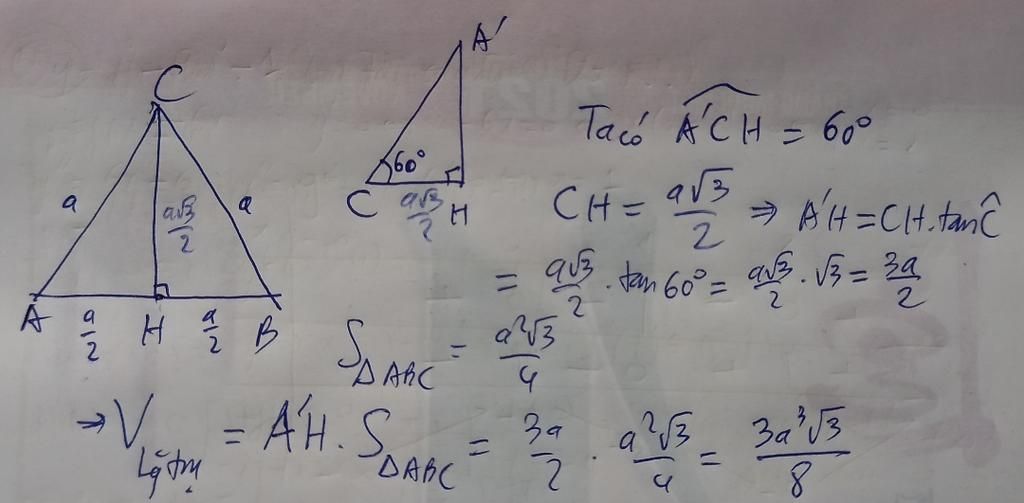 C
a
a√3/2
a
A
a/2
H
a/2
B
A'
60°
C
a√3/2
H
Ta có A'CH = 60°
CH = a√3/2 ⇒ A'H = CH.tanĈ
= a√3/2 . tan 60° = a√3/2 . √3 = 3a/2
S△ABC = a²√3/4
⇒ V lg trụ = A'H . S△ABC = 3a/2 . a²√3/4 = 3a³√3/8